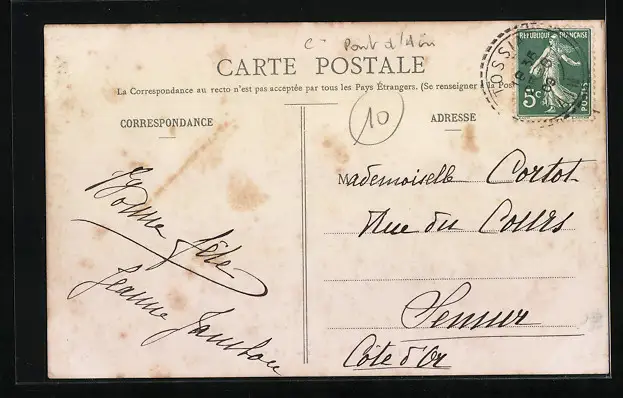 c- Pont d'Ain
CARTE POSTALE
La Correspondance au recto n'est pas acceptée par tous les Pays Étrangers. (Se renseigner à la Pos
CORRESPONDANCE
10
ADRESSE
REPUBLIQUE FRANÇAISE
5c
POSTES
TOSSI
Bonne fête
Jeanne
Mademoiselle Cortot
Rue du Cours
Semur
Côte d'Or